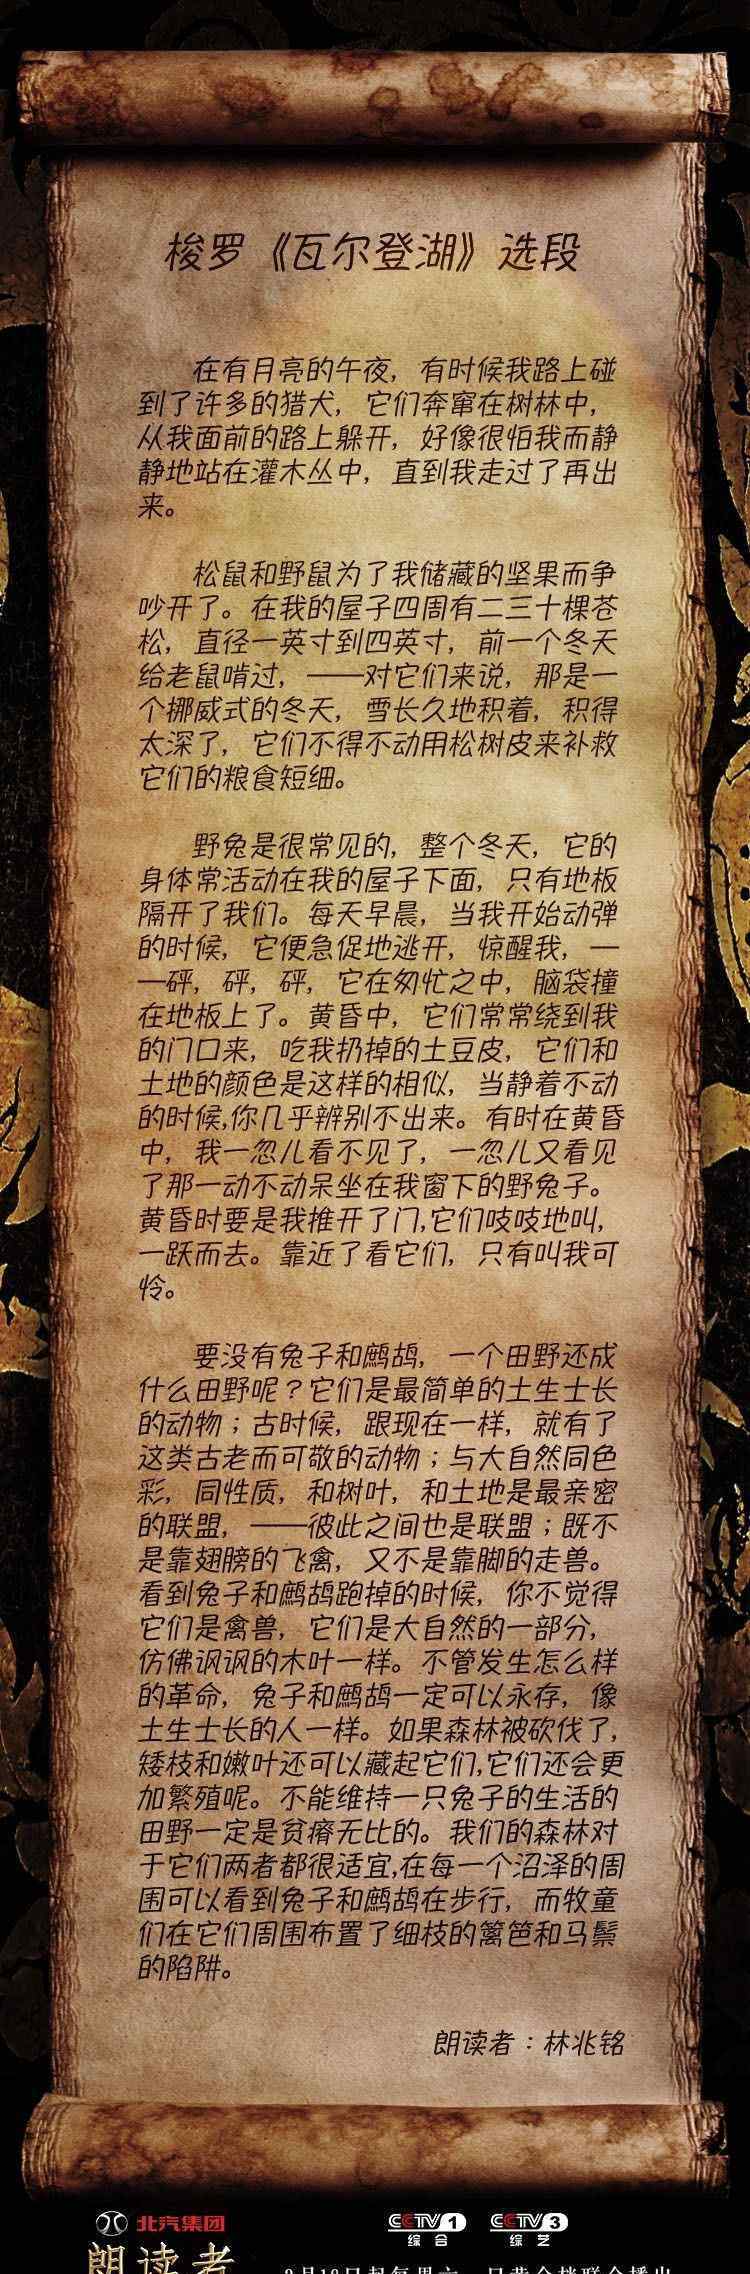 梭罗《瓦尔登湖》选段
在有月亮的午夜，有时候我路上碰
到了许多的猎犬，它们奔窜在树林中，
从我面前的路上躲开，好像很怕我而静
静地站在灌木丛中，直到我走过了再出
来。
松鼠和野鼠为了我储藏的坚果而争
吵开了。在我的屋子四周有二三十棵苍
松，直径一英寸到四英寸，前一个冬天
给老鼠啃过，——对它们来说，那是一
个挪威式的冬天，雪长久地积着，积得
太深了，它们不得不动用松树皮来补救
它们的粮食短细。
野兔是很常见的，整个冬天，它的
身体常活动在我的屋子下面，只有地板
隔开了我们。每天早晨，当我开始动弹
的时候，它便急促地逃开，惊醒我，—
—砰，砰，砰，它在匆忙之中，脑袋撞
在地板上了。黄昏中，它们常常绕到我
的门口来，吃我扔掉的土豆皮，它们和
土地的颜色是这样的相似，当静着不动
的时候,你几乎辨别不出来。有时在黄昏
中，我一忽儿看不见了，一忽儿又看见
了那一动不动呆坐在我窗下的野兔子。
黄昏时要是我推开了门,它们吱吱地叫,
一跃而去。靠近了看它们，只有叫我可
怜。
要没有兔子和鹧鸪，一个田野还成
什么田野呢？它们是最简单的土生土长
的动物；古时候，跟现在一样，就有了
这类古老而可敬的动物；与大自然同色
彩，同性质，和树叶，和土地是最亲密
的联盟，——彼此之间也是联盟；既不
是靠翅膀的飞禽，又不是靠脚的走兽。
看到兔子和鹧鸪跑掉的时候，你不觉得
它们是禽兽，它们是大自然的一部分，
仿佛讽讽的木叶一样。不管发生怎么样
的革命，兔子和鹧鸪一定可以永存，像
土生土长的人一样。如果森林被砍伐了,
矮枝和嫩叶还可以藏起它们,它们还会更
加繁殖呢。不能维持一只兔子的生活的
田野一定是贫瘠无比的。我们的森林对
于它们两者都很适宜,在每一个沼泽的周
围可以看到兔子和鹧鸪在步行，而牧童
们在它们周围布置了细枝的篱笆和马鬃
的陷阱。
朗读者：林兆铭
北汽集团
CCTV 1 综合
CCTV 3 综艺
朗读者